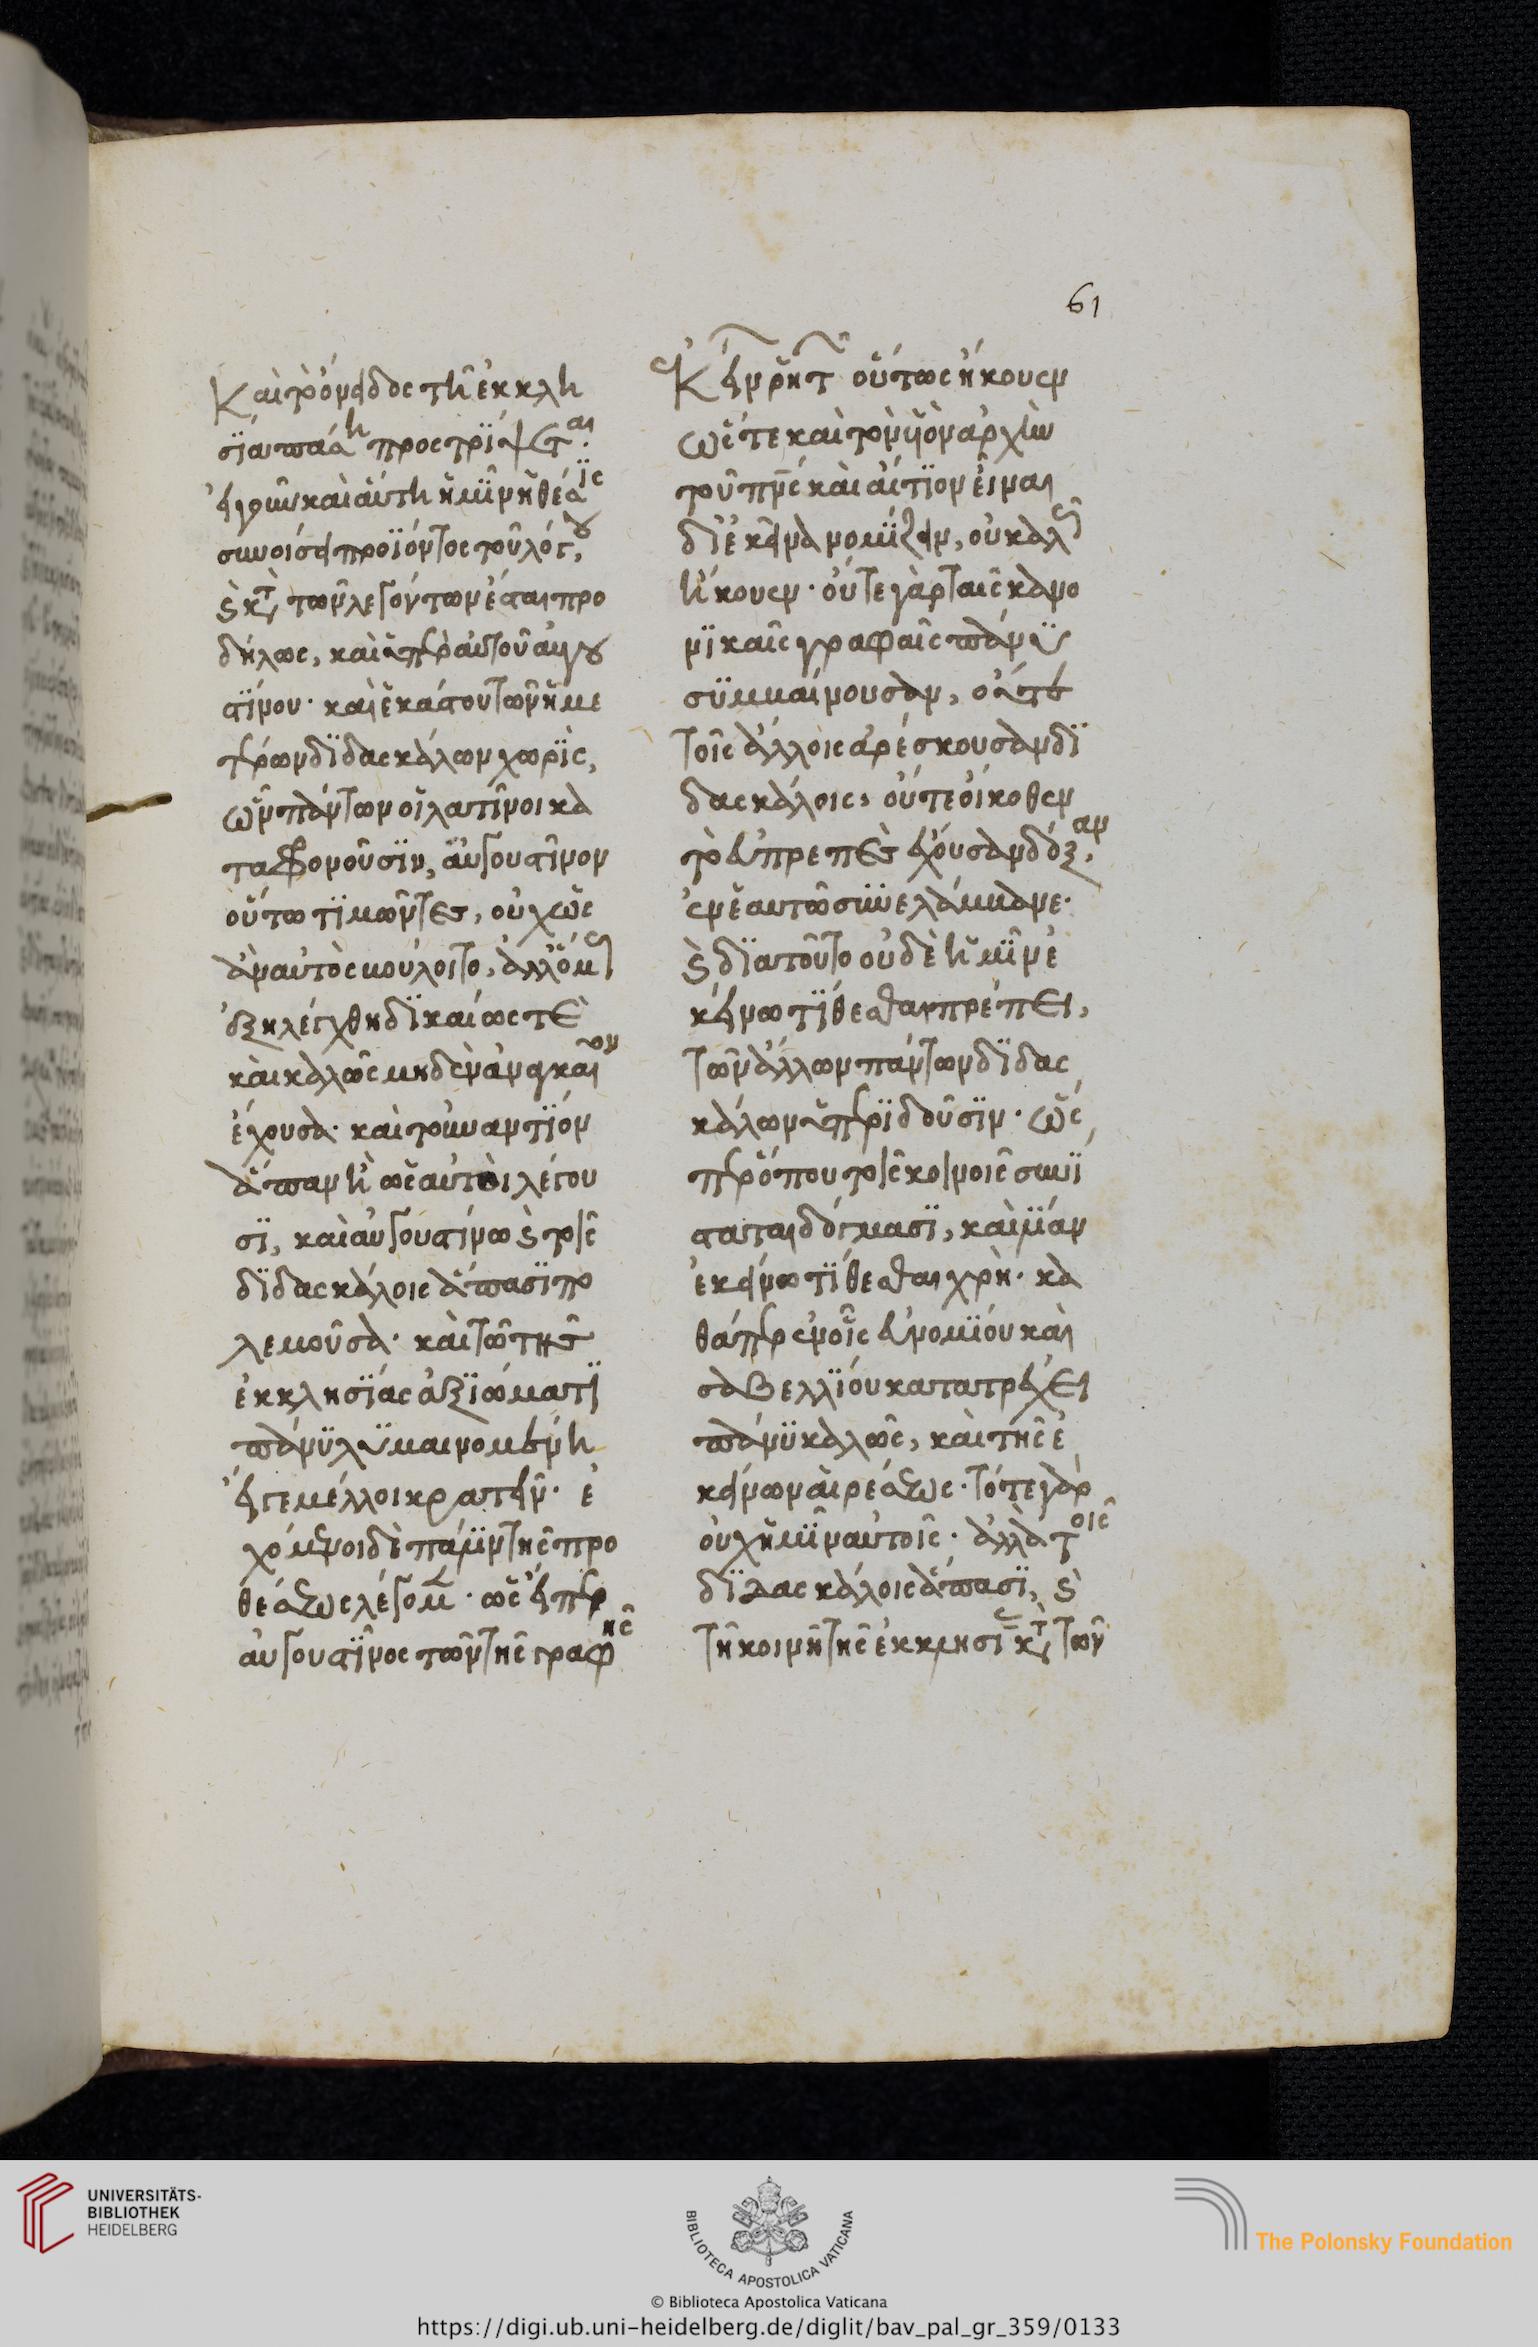 61
Καὶ τὸ ὄνειδος τῆ ἐκκλη
σία πάση προστρίψεται·
εἰ γοῦν καὶ αὕτη ἡμῖν ἡ θέσις
συνοίσει προϊόντος τοῦ λόγου,
καὶ κατὰ τῶν λεγόντων ἔσται προ
δήλως, καὶ ὑπὲρ αὐτοῦ αὐγου
στίνου· καὶ ἑκάστου τῶν ἡμε
τέρων διδασκάλων χωρὶς,
ὧν πάντων οἱ λατῖνοι κα
ταφρονοῦσιν, αὐγουστῖνον
οὕτω τιμῶντες, οὐχ ὡς
ἂν αὐτὸς βούλοιτο, ἀλλ' ὅμως
ἐξηλέγχθη δικαίως τὲ
καὶ καλῶς μηδὲν ἀναγκαῖον
ἔχουσα· καὶ τοὐναντίον
ἅπαν ἢ ὡς αὐτοὶ λέγου
σι, καὶ αὐγουστίνω καὶ τοῖς
διδασκάλοις ἅπασι πο
λεμοῦσα· καὶ τῶ τῆς
ἐκκλησίας ἀξιώματι
πάνυ λυμαινομένη
εἴγε μέλλοι κρατεῖν· ἐ
χόμενοι δὲ πάλιν τῆς προ
θέσεως λέγομεν· ὡς εἴπερ
αὐγουστῖνος τῶν τῆς γραφῆς
ἐκεῖν ρητ οὕτως ἤκουεν
ὥστε καὶ τὸν υἱὸν ἀρχὴν
τοῦ πνς καὶ αἴτιον εἶναι
δι' ἐκεῖνα νομίζειν, οὐ καλῶς
ἤκουεν· οὔτε γὰρ ταῖς κανο
νικαῖς γραφαῖς πάνυ
συμβαίνουσαν, οὔτε
τοῖς ἄλλοις ἀρέσκουσαν δι
δασκάλοις, οὔτε οἴκοθεν
τὸ εὐπρεπὲς ἔχουσαν δόξαν,
ἐν ἑαυτῶ συνελάμβανε·
καὶ διατοῦτο οὐδὲ ἡμῖν ἐ
κείνω τίθεσθαι πρέπει,
τῶν ἄλλων πάντων διδασ
κάλων ὑπεριδοῦσιν· ὡς
περ ὅπου τοῖς κοινοῖς συνί
σταται δόγμασι, καὶ λίαν
ἐκείνω τίθεσθαι χρὴ· κα
θάπερ ἐν οἷς εὐνομίου καὶ
σαβελλίου κατατρέχει
πάνυ καλῶς, καὶ τῆς ἐ
κείνων αἱρέσεως· τότε γὰρ
οὐχ ἡμῖν αὐτοῖς· ἀλλὰ τοῖς
διδασκάλοις ἅπασι, καὶ
τῆ κοινῆ τῆς ἐκκλησίας κατὰ τῶν
UNIVERSITÄTS-
BIBLIOTHEK
HEIDELBERG
BIBLIOTECA APOSTOLICA VATICANA
The Polonsky Foundation
© Biblioteca Apostolica Vaticana
https://digi.ub.uni-heidelberg.de/diglit/bav_pal_gr_359/0133